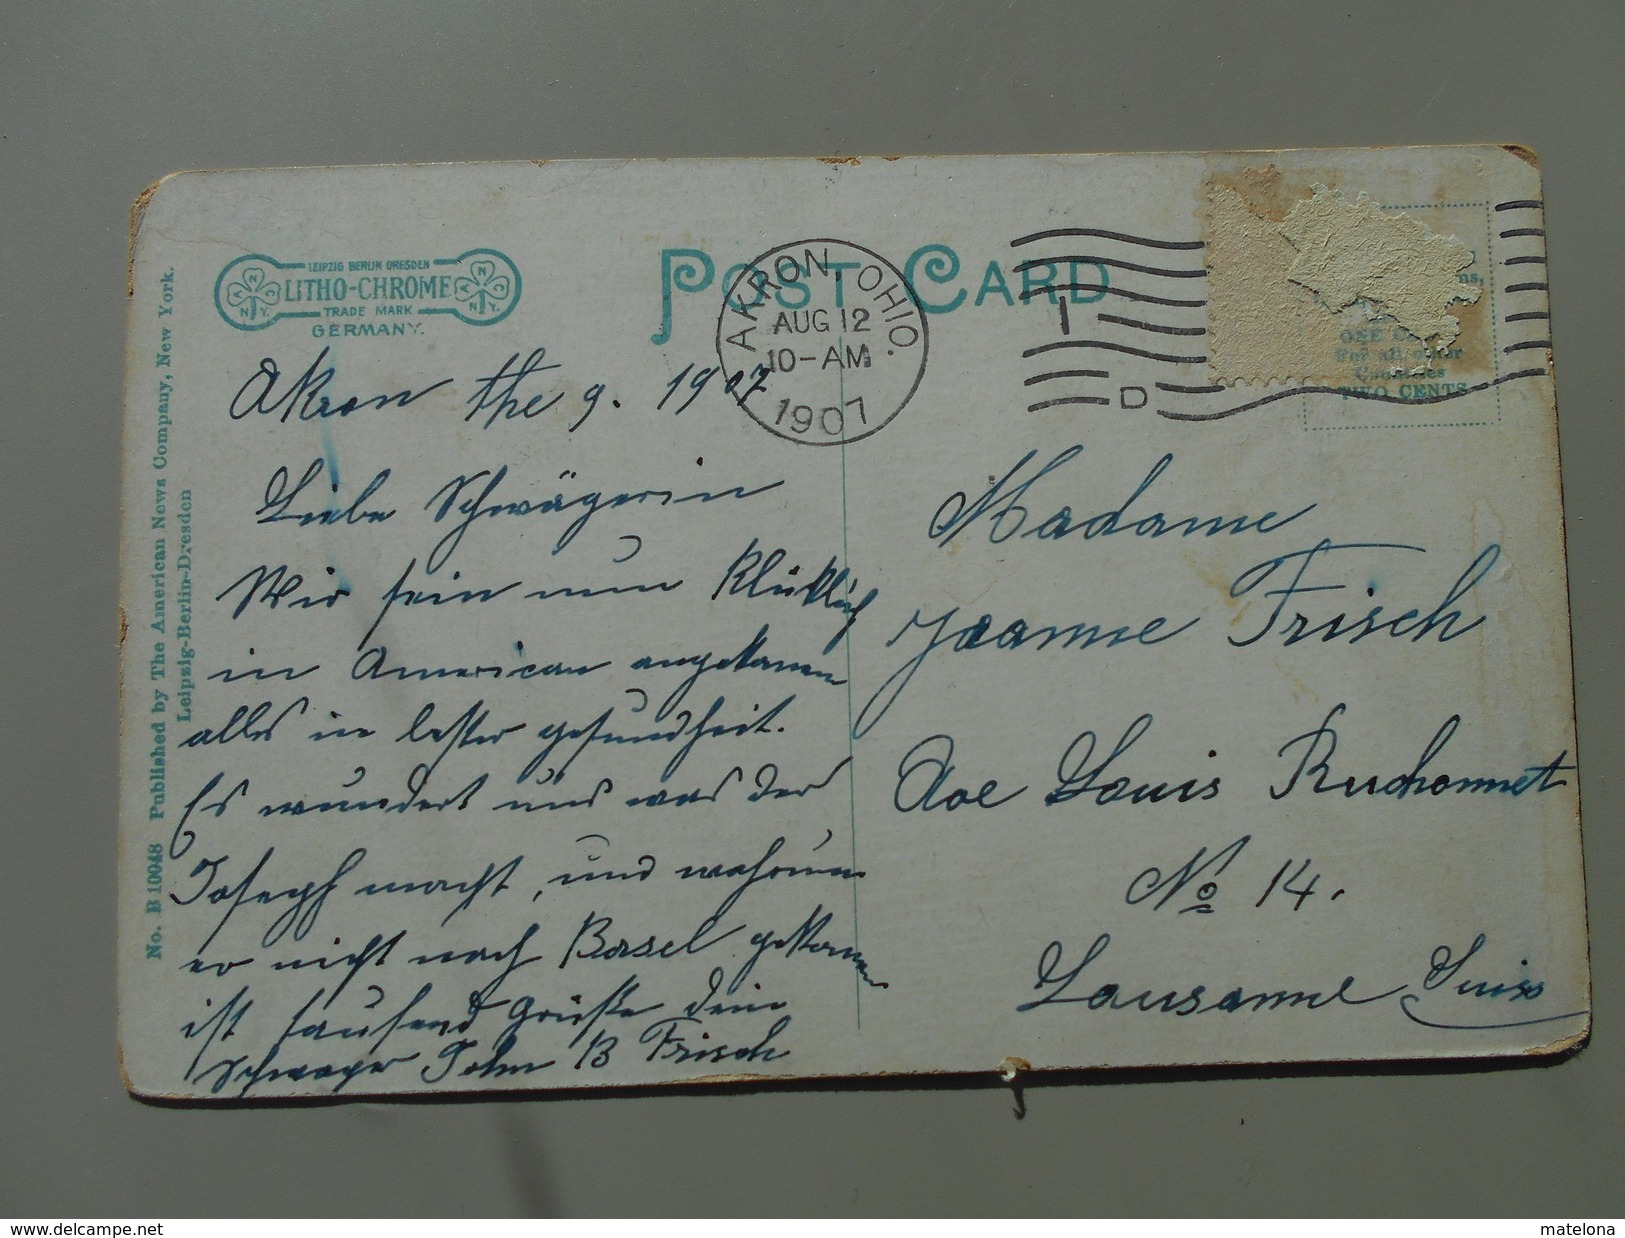 LEIPZIG BERLIN DRESDEN
LITHO-CHROME
TRADE MARK
GERMANY.
POST CARD
AKRON, OHIO.
AUG 12
10-AM
1907
D
ONE
For all other
Countries
TWO CENTS
No. B 10048 Published by The American News Company, New York.
Leipzig-Berlin-Dresden
Akron the 9. 1907
Liebe Schwägerin
Wir sein nun klüklich
in American angekomen
alles in bester gesundheit.
Es wundert uns was der
Joseph macht, und wahrum
er nicht nach Basel gekomen
ist tausend Grüße dein
Schwager John B Frisch
Madame
Jeanne Frisch
Ave Louis Ruchonnet
No 14.
Lausanne Suiss
www.delcampe.net
matelona